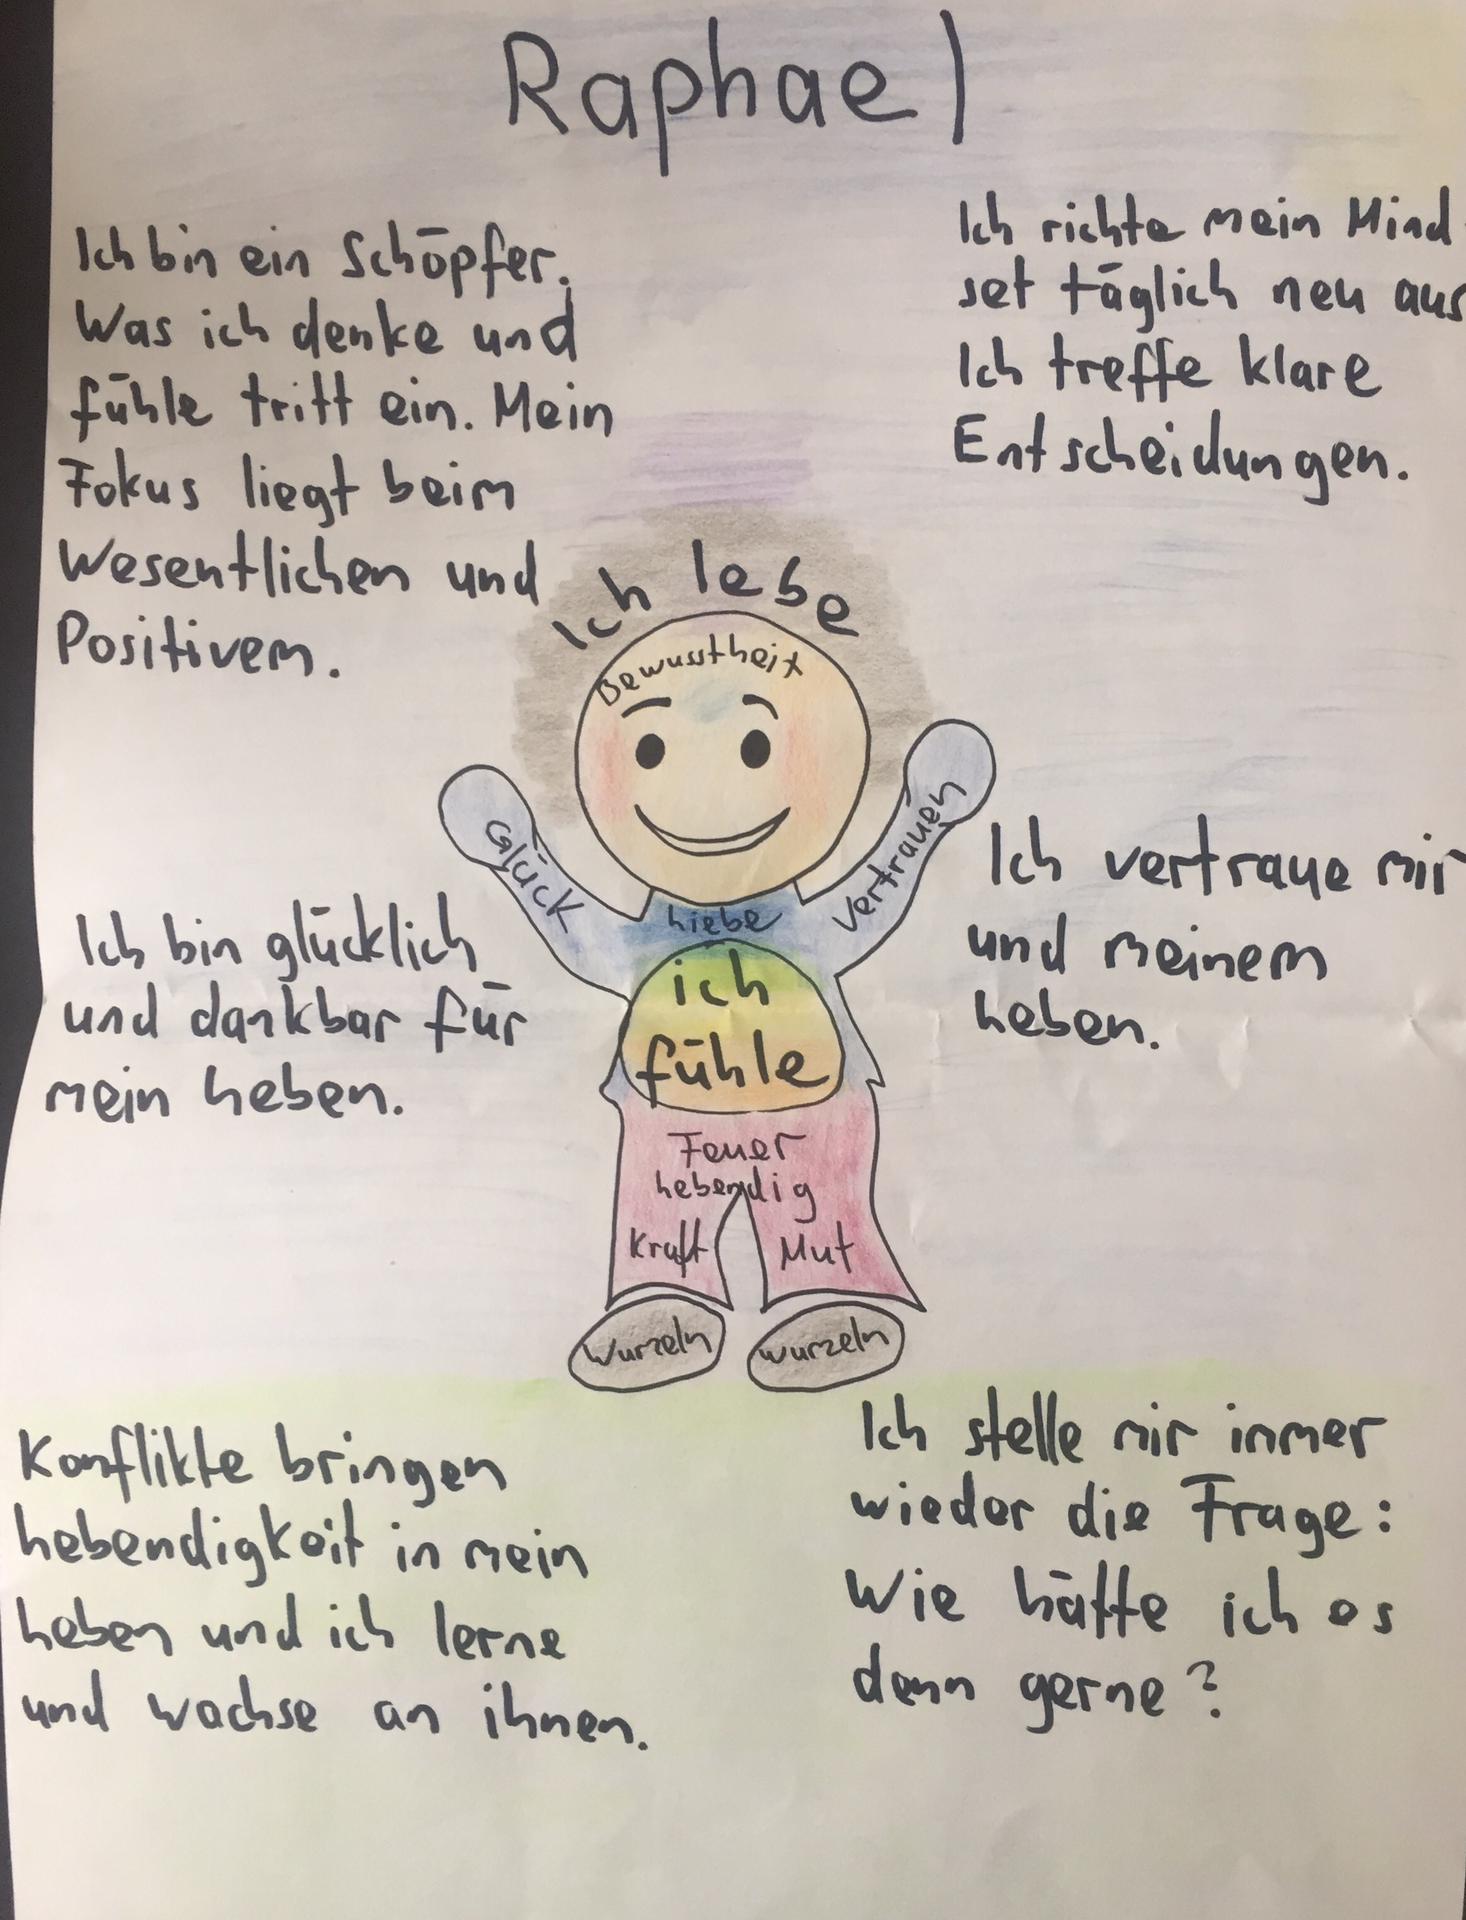 Raphael
Ich bin ein Schöpfer.
Was ich denke und
fühle tritt ein. Mein
Fokus liegt beim
Wesentlichen und
Positivem.
Ich richte mein Mind-
set täglich neu aus
Ich treffe klare
Entscheidungen.
Ich lebe
Bewusstheit
Glück
Vertrauen
Liebe
ich
fühle
Feuer
Lebendig
Kraft Mut
Wurzeln wurzeln
Ich bin glücklich
und dankbar für
mein Leben.
Ich vertraue mir
und meinem
Leben.
Konflikte bringen
Lebendigkeit in mein
Leben und ich lerne
und wachse an ihnen.
Ich stelle mir immer
wieder die Frage:
Wie hätte ich es
denn gerne?